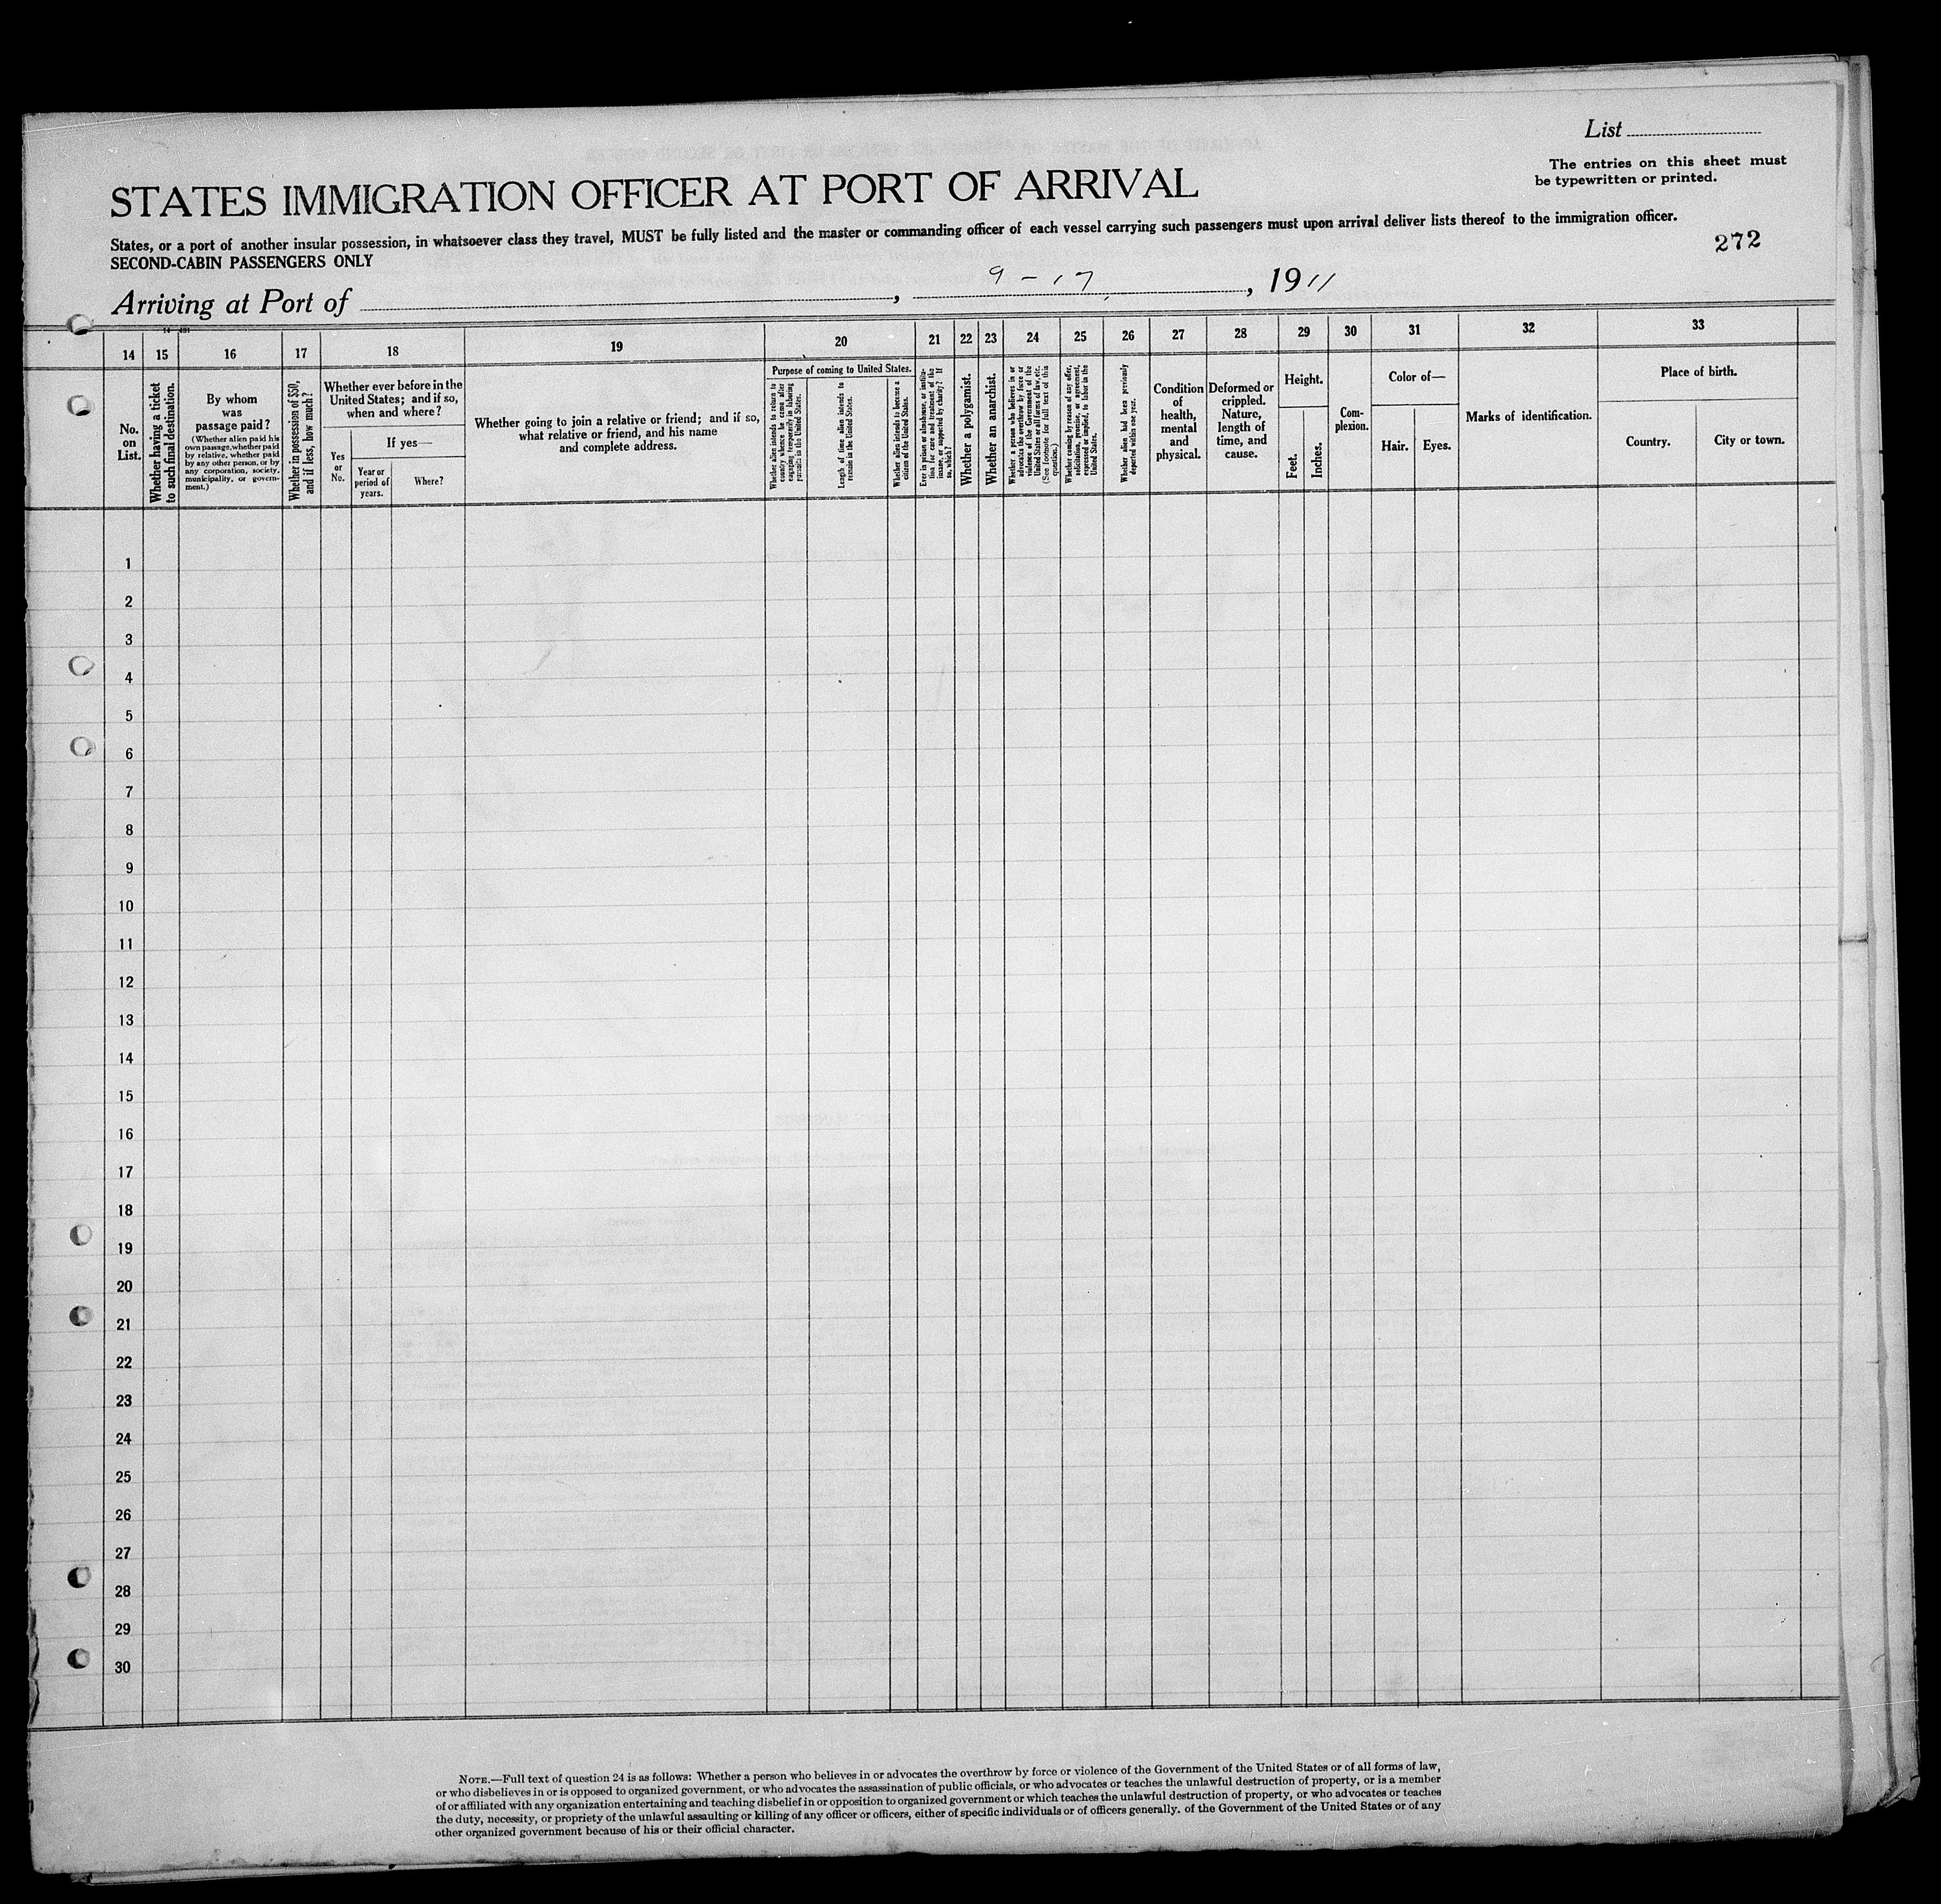 List
The entries on this sheet must
be typewritten or printed.
STATES IMMIGRATION OFFICER AT PORT OF ARRIVAL
States, or a port of another insular possession, in whatsoever class they travel, MUST be fully listed and the master or commanding officer of each vessel carrying such passengers must upon arrival deliver lists thereof to the immigration officer.
SECOND-CABIN PASSENGERS ONLY
272
Arriving at Port of , 9 - 17, 1911
14 15 16 17 18 19 20 21 22 23 24 25 26 27 28 29 30 31 32 33
No.
on
List.
Whether having a ticket
to such final destination.
By whom
was
passage paid?
(Whether alien paid his
own passage, whether paid
by relative, whether paid
by any other person, or by
any corporation, society,
municipality, or govern-
ment.)
Whether in possession of $50,
and if less, how much?
Whether ever before in the
United States; and if so,
when and where?
Yes
or
No.
If yes—
Year or
period of
years.
Where?
Whether going to join a relative or friend; and if so,
what relative or friend, and his name
and complete address.
Purpose of coming to United States.
Whether alien intends to return to
country whence he came after
engaging temporarily in laboring
pursuits in the United States.
Length of time alien intends to
remain in the United States.
Whether alien intends to become a
citizen of the United States.
Ever in prison or almshouse, or institu-
tion for care and treatment of the
insane, or supported by charity? If
so, which?
Whether a polygamist.
Whether an anarchist.
Whether a person who believes in or
advocates the overthrow by force or
violence of the Government of the
United States or all forms of law, etc.
(See footnote for full text of this
question.)
Whether coming by reason of any offer,
solicitation, promise, or agreement,
expressed or implied, to labor in the
United States.
Whether alien had been previously
deported within one year.
Condition
of
health,
mental
and
physical.
Deformed or
crippled.
Nature,
length of
time, and
cause.
Height.
Feet.
Inches.
Com-
plexion.
Color of—
Hair.
Eyes.
Marks of identification.
Place of birth.
Country.
City or town.
1
2
3
4
5
6
7
8
9
10
11
12
13
14
15
16
17
18
19
20
21
22
23
24
25
26
27
28
29
30
NOTE.—Full text of question 24 is as follows: Whether a person who believes in or advocates the overthrow by force or violence of the Government of the United States or of all forms of law,
or who disbelieves in or is opposed to organized government, or who advocates the assassination of public officials, or who advocates or teaches the unlawful destruction of property, or is a member
of or affiliated with any organization entertaining and teaching disbelief in or opposition to organized government or which teaches the unlawful destruction of property, or who advocates or teaches
the duty, necessity, or propriety of the unlawful assaulting or killing of any officer or officers, either of specific individuals or of officers generally. of the Government of the United States or of any
other organized government because of his or their official character.